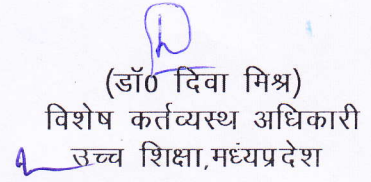 (डॉ0 दिवा मिश्र)
विशेष कर्तव्यस्थ अधिकारी
उच्च शिक्षा,मध्यप्रदेश